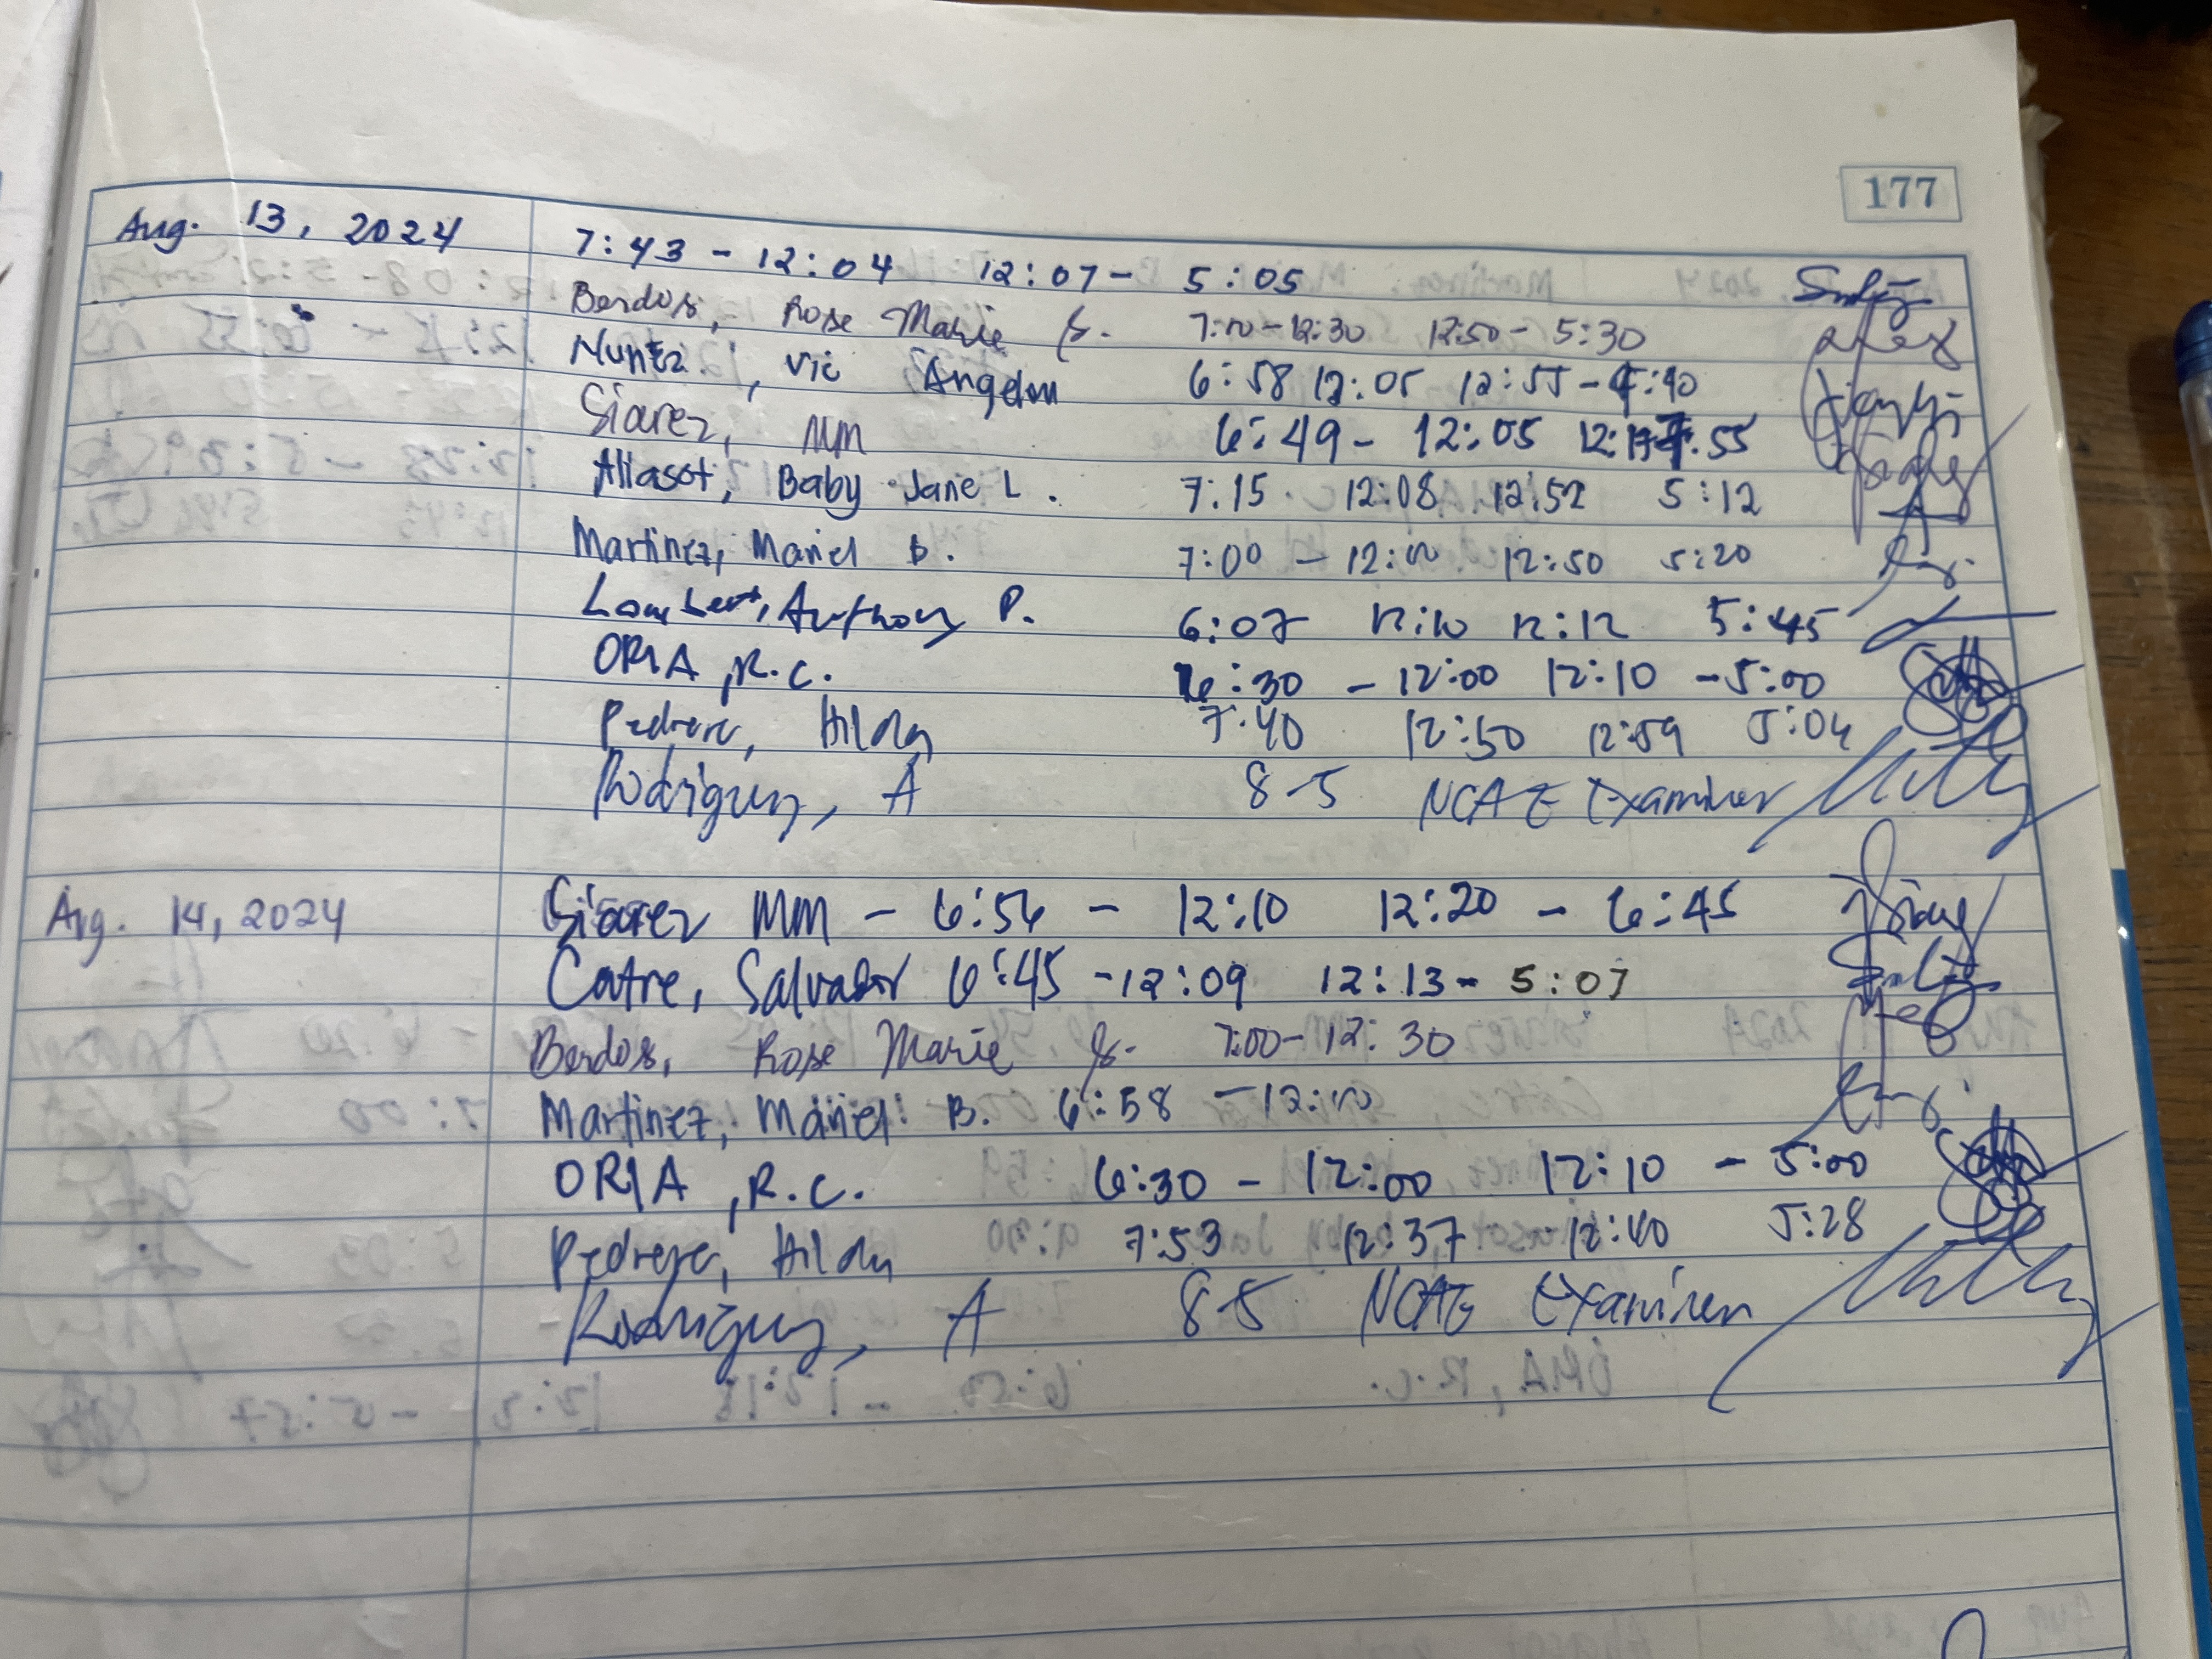 177
Aug. 13, 2024 7:43 - 12:04 12:07 - 5:05
Berdos, Rose Marie G. 7:00 - 12:30 12:50 - 5:30
Nuñez, Vic Angelou 6:58 12:05 12:55 - 4:40
Siarez, MM 6:49 - 12:05 12:17
Aliasot, Baby Jane L. 7:15 12:08 12:52 5:12
Martinez, Mariel B. 7:00 - 12:00 12:50 5:20
Lambert, Anthony P. 6:07 12:10 12:12 5:45
ORIA, R.C. 6:30 - 12:00 12:10 - 5:00
Pedrera, Hilda 7:40 12:50 12:59 5:04
Rodriguez, A 8-5 NCAE Examiner
Aug. 14, 2024 Siarez MM - 6:56 - 12:10 12:20 - 6:45
Catre, Salvador 6:45 - 12:09 12:13 - 5:07
Berdos, Rose Marie G. 7:00 - 12:30
Martinez, Mariel B. 6:58 - 12:00
ORIA, R.C. 6:30 - 12:00 12:10 - 5:00
Pedrera, Hilda 7:53 12:37 12:40 5:28
Rodriguez, A 8-5 NCAE Examiner